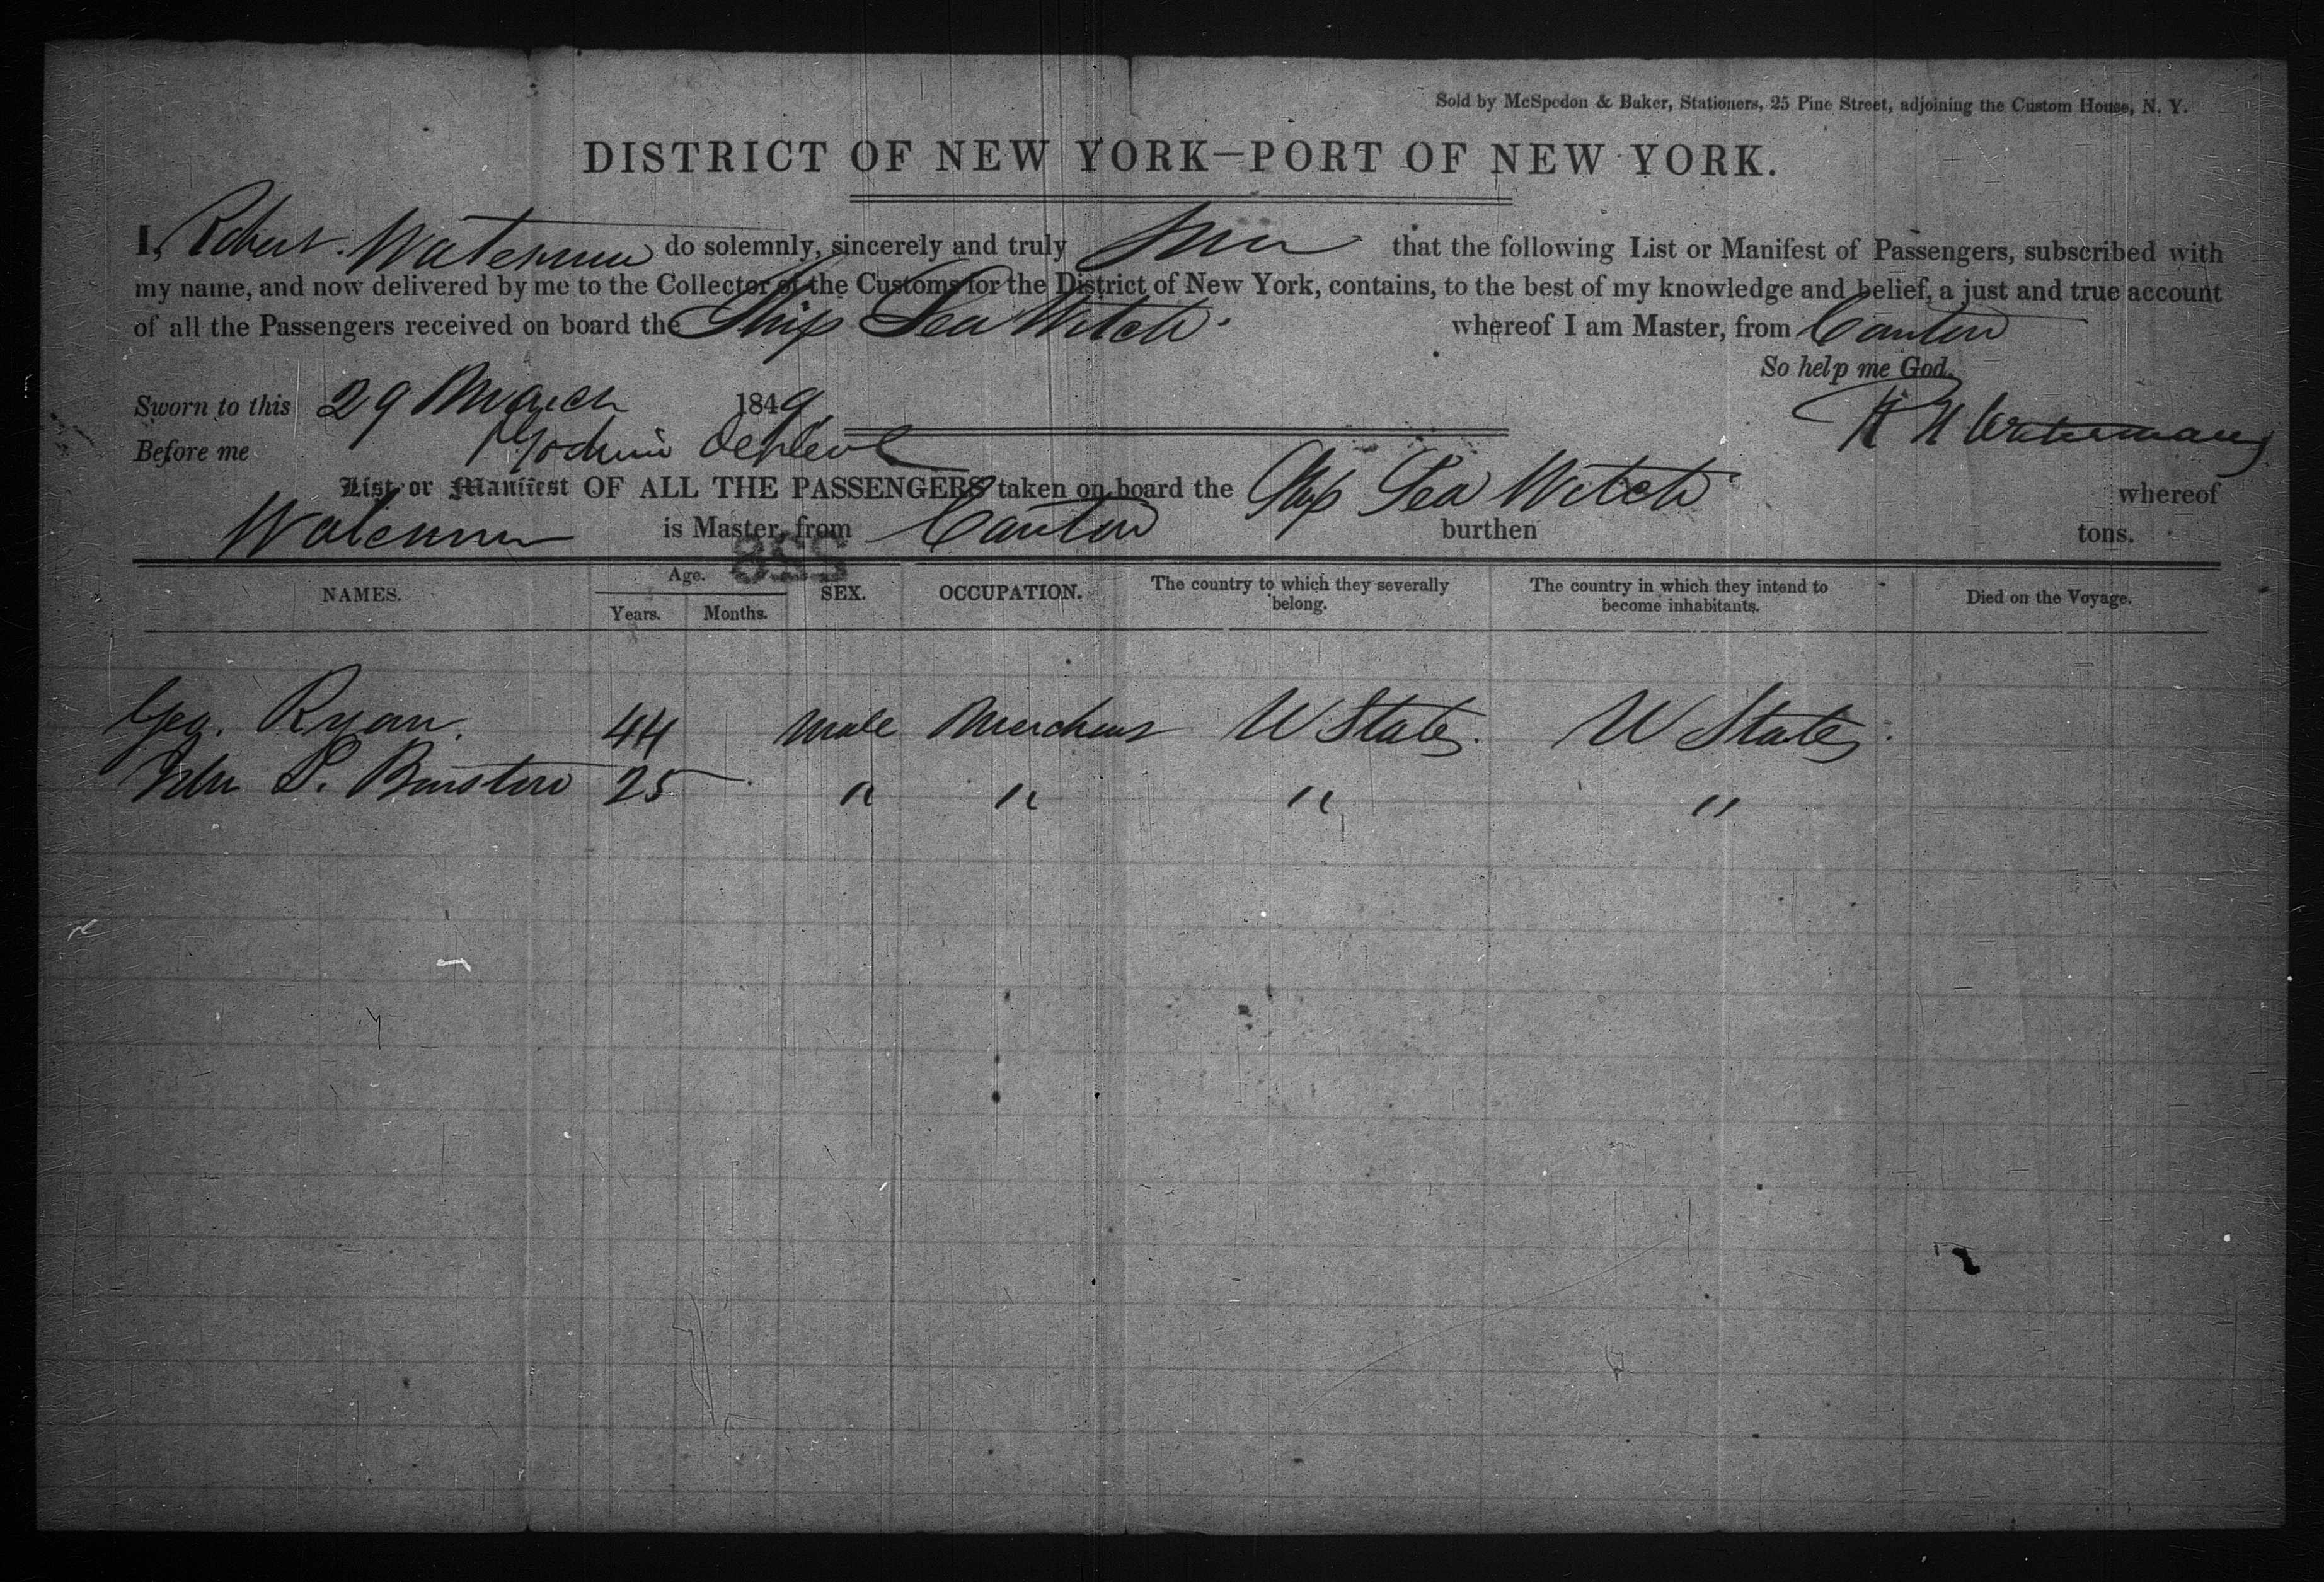 Sold by McSpedon & Baker, Stationers, 25 Pine Street, adjoining the Custom House, N. Y.
DISTRICT OF NEW YORK—PORT OF NEW YORK.
I, Robert Waterman do solemnly, sincerely and truly that the following List or Manifest of Passengers, subscribed with
my name, and now delivered by me to the Collector of the Customs for the District of New York, contains, to the best of my knowledge and belief, a just and true account
of all the Passengers received on board the Ship Sea Witch whereof I am Master, from Canton
So help me God.
Sworn to this 29 March 1849 R H Waterman
Before me
List or Manifest OF ALL THE PASSENGERS taken on board the Ship Sea Witch whereof
Waterman is Master, from Canton burthen tons.
NAMES. Age. SEX. OCCUPATION. The country to which they severally belong. The country in which they intend to become inhabitants. Died on the Voyage.
Years. Months.
Geo. Ryan. 44 Male Merchant U States. U States.
25 " " " "